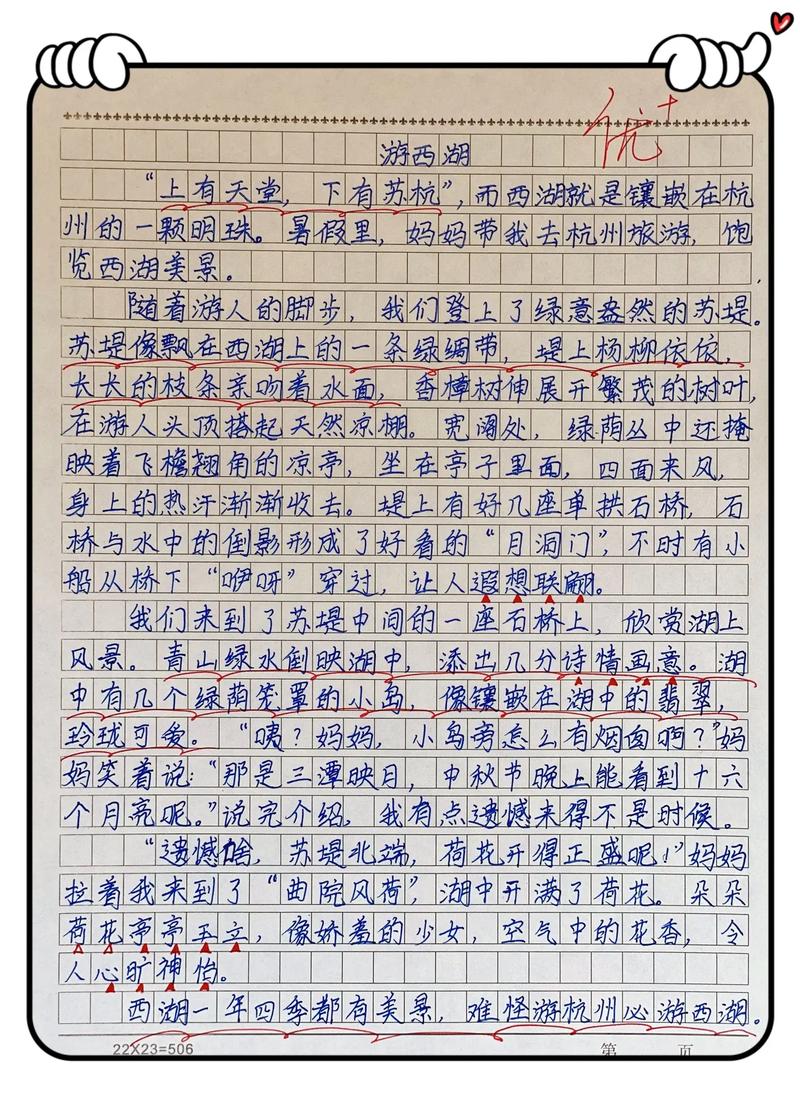 优+
游西湖
“上有天堂，下有苏杭”，而西湖就是镶嵌在杭
州的一颗明珠。暑假里，妈妈带我去杭州旅游，饱
览西湖美景。
随着游人的脚步，我们登上了绿意盎然的苏堤。
苏堤像飘在西湖上的一条绿绸带，堤上杨柳依依，
长长的枝条亲吻着水面，香樟树伸展开繁茂的树叶，
在游人头顶搭起天然凉棚。宽阔处，绿荫丛中还掩
映着飞檐翘角的凉亭，坐在亭子里面，四面来风，
身上的热汗渐渐收去。堤上有好几座单拱石桥，石
桥与水中的倒影形成了好看的“月洞门”，不时有小
船从桥下“咿呀”穿过，让人遐想联翩。
我们来到了苏堤中间的一座石桥上，欣赏湖上
风景。青山绿水倒映湖中，添出几分诗情画意。湖
中有几个绿荫笼罩的小岛，像镶嵌在湖中的翡翠，
玲珑可爱。“咦？妈妈，小岛旁怎么有烟囱啊？”妈
妈笑着说：“那是三潭映月，中秋节晚上能看到十六
个月亮呢。”说完介绍，我有点遗憾来得不是时候。
“遗憾啥，苏堤北端，荷花开得正盛呢！”妈妈
拉着我来到了“曲院风荷”，湖中开满了荷花。朵朵
荷花亭亭玉立，像娇羞的少女，空气中的花香，令
人心旷神怡。
西湖一年四季都有美景，难怪游杭州必游西湖。
22X23=506
第 页